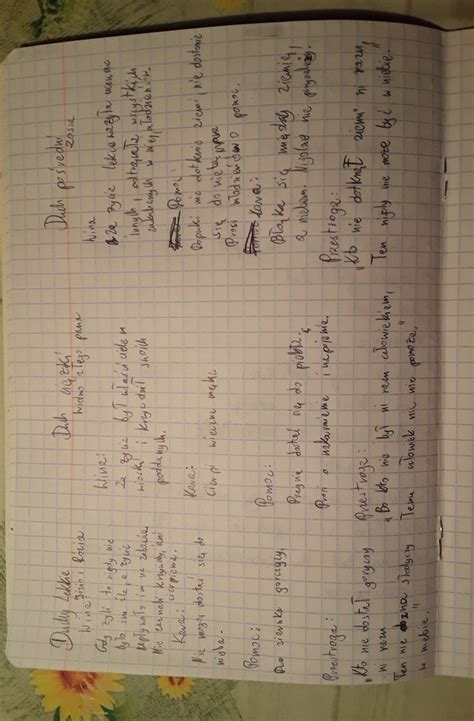 Duchy lekkie
Józio i Rózia
Wina:
Gdy żyli to nigdy nie
było im źle, a życie
upływało im na zabawie.
Nie zaznali krzywdy, ani
cierpienia.
Kara:
Nie mogą dostać się do
nieba.
Pomoc:
Dwa ziarnka gorczycy.
Przestroga:
„Kto nie doznał goryczy
ni razu
Ten nie dozna słodyczy
w niebie”
Duch ciężki
widmo złego pana
Wina:
Za życia był właścicielem
wioski i krzywdził swoich
poddanych.
Kara:
Cierpi wieczne męki.
Pomoc:
Pragnie dostać się do piekła.
Prosi o nakarmienie i napojenie.
Przestroga:
„Bo kto nie był ni razu człowiekiem,
Temu człowiek nic nie pomoże.”
Duch pośredni
Zosia
Wina
Za życia lekceważyła uczucia
innych i odtrącała wszystkich
zakochanych w niej młodzieńców.
Pomoc:
Dopóki nie dotknie ziemi, nie dostanie
się do nieba,
Prosi młodzieńców o pomoc.
Kara:
Błąka się między ziemią,
a niebem. Nigdzie nie przynależy.
Przestroga:
„Kto nie dotknął ziemi ni razu,
Ten nigdy nie może być w niebie.”